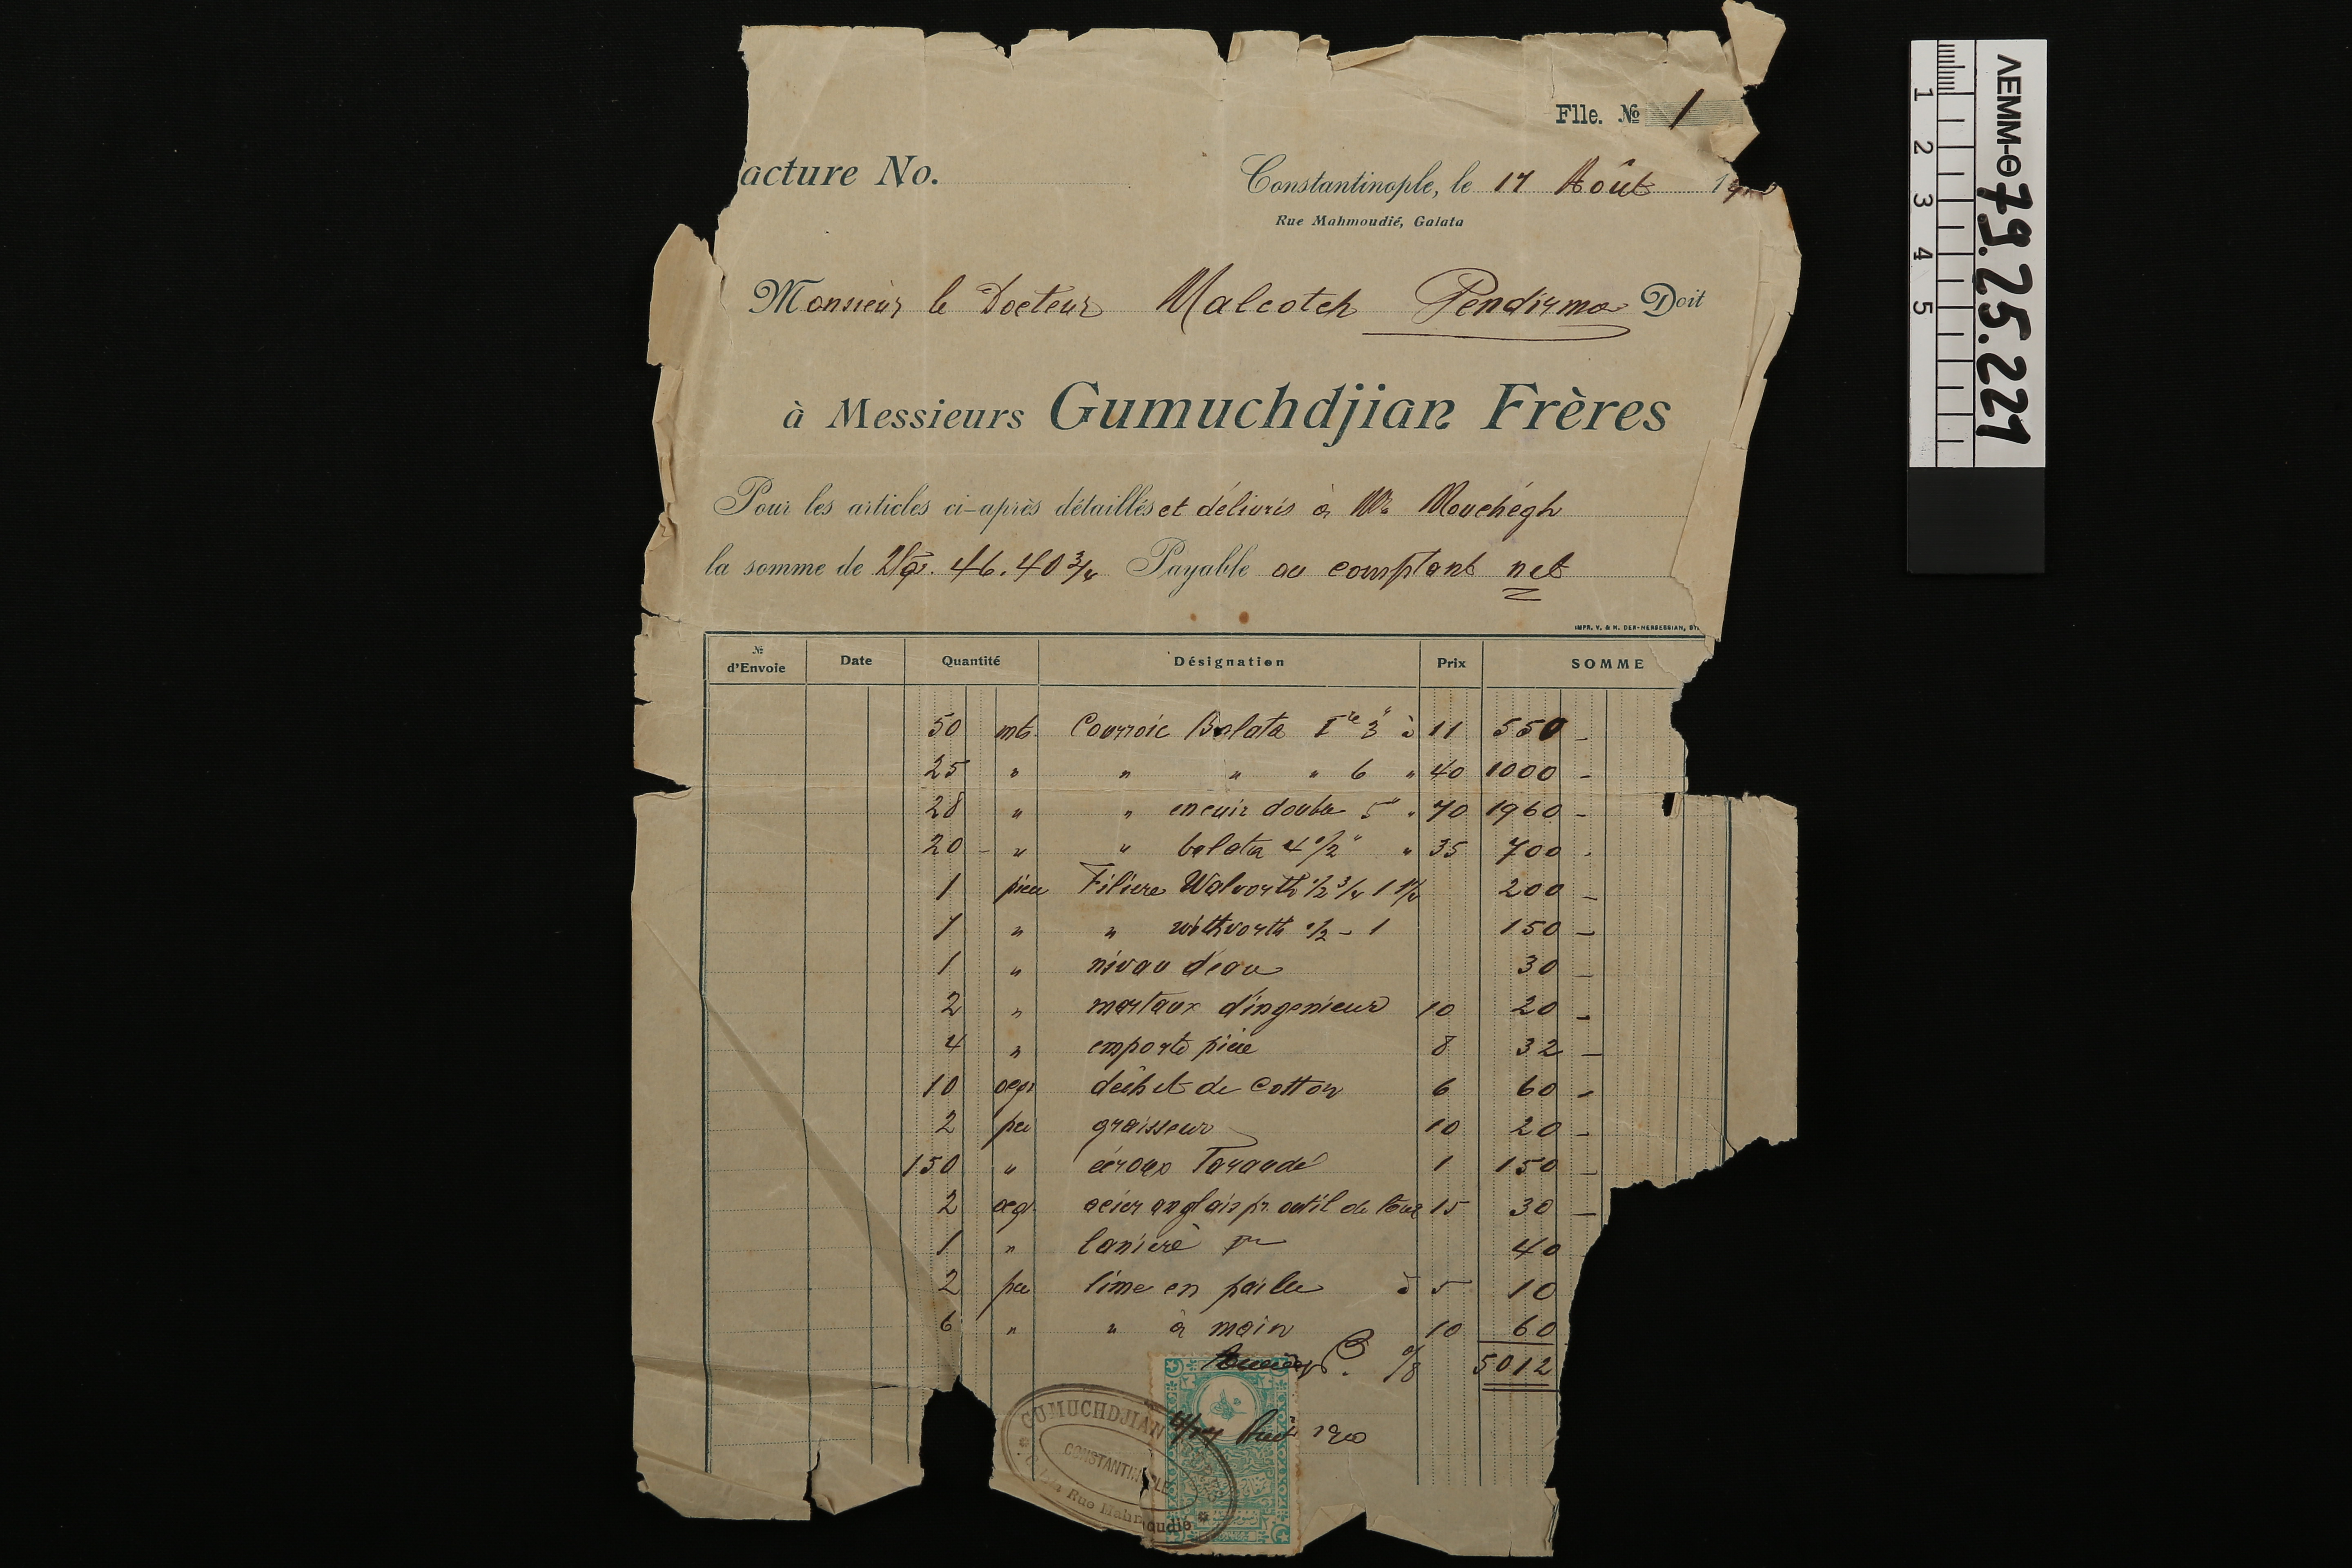 Flle. № 1
acture No.
Constantinople, le 17 Août 19
Rue Mahmoudié, Galata
Monsieur le Docteur Malcotch Pendirma Doit
à Messieurs Gumuchdjian Frères
Pour les articles ci-après détaillés et délivrés à Mr Mouchégh
la somme de 46.40 3/4 Payable au comptant net
IMPR. V. & H. DER-NERSESSIAN, ST
№ d'Envoie Date Quantité Désignation Prix SOMME
50 mt. Courroie Balata Ire 3" à 11 550 –
25 " " " " 6 " 40 1000 –
28 " " en cuir double 5" " 70 1960 –
20 – " " balata 4 1/2" " 35 700 –
1 piece Filiere Walworth 1/2 3/4 1 1 1/4 200 –
1 " " withvorth 1/2 – 1 150 –
1 " nivau d'eau 30 –
2 " martaux d'ingenieur 10 20 –
4 " emporte piece 8 32 –
10 ocq déchet de Cotton 6 60 –
2 pce graisseur 10 20 –
150 " écroux Taraudé 1 150 –
2 ocq acier anglais pr. outil de tour 15 30 –
1 " laniere Ire 40
2 pce lime en paille à 5 10
6 " " à main 10 60
5012
Août 1910
GUMUCHDJIAN FRÈRES
CONSTANTINOPLE
Rue Mahmoudié
ΛΕΜΜ-Θ 79.25.221
1 2 3 4 5